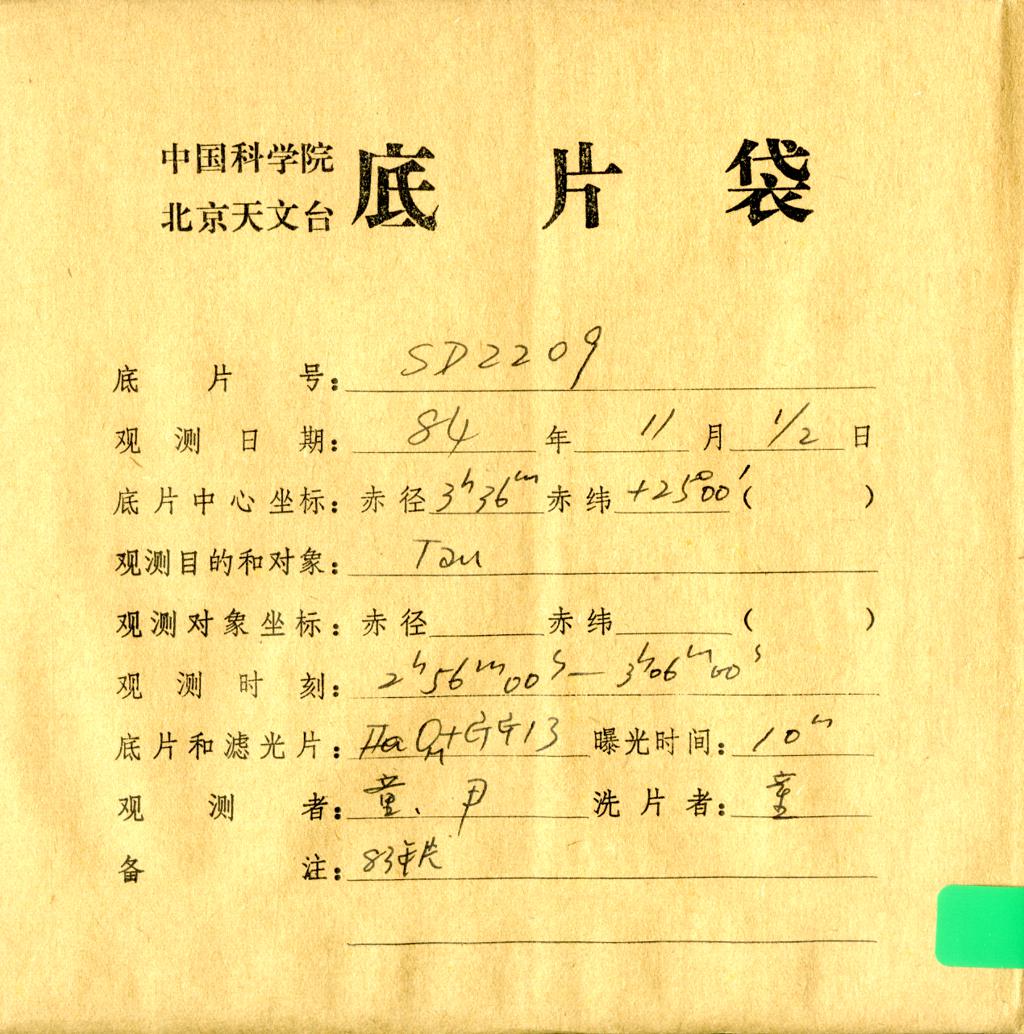 中国科学院
北京天文台 底片袋
底片号: SD2209
观测日期: 84年 11月 1/2日
底片中心坐标: 赤径 3ʰ36ᵐ 赤纬 +25°00′ ( )
观测目的和对象: Tau
观测对象坐标: 赤径 赤纬 ( )
观测时刻: 2ʰ56ᵐ00ˢ — 3ʰ06ᵐ00ˢ
底片和滤光片: GG13 曝光时间: 10ᵐ
观测者: 童、尹 洗片者: 童
备注: 83年片